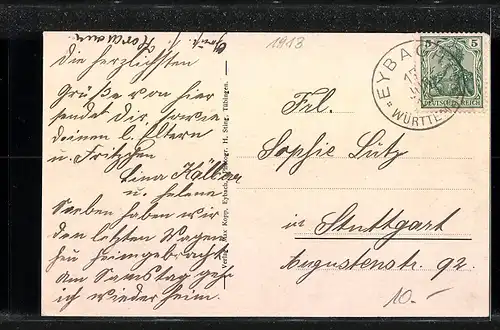 1913
Die herzlichsten
Grüße von hier
sendet dir, sowie
deinen l. Eltern
u. Fritzchen
Lina
u. Helene
Soeben haben wir
den letzten Wagen
heu heimgebracht
Am Samstag geh
ich wieder heim.
Verlag Max Kopp, Eybach. H. Sting, Tübingen.
EYBACH
WÜRTTE
5 5
DEUTSCHES REICH
Frl.
Sophie Lutz
in Stuttgart
Augustenstr. 92.
10.-